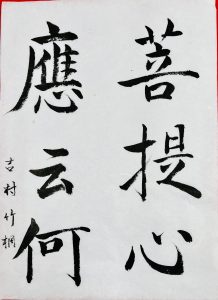 菩提心
應云何
吉村竹楓